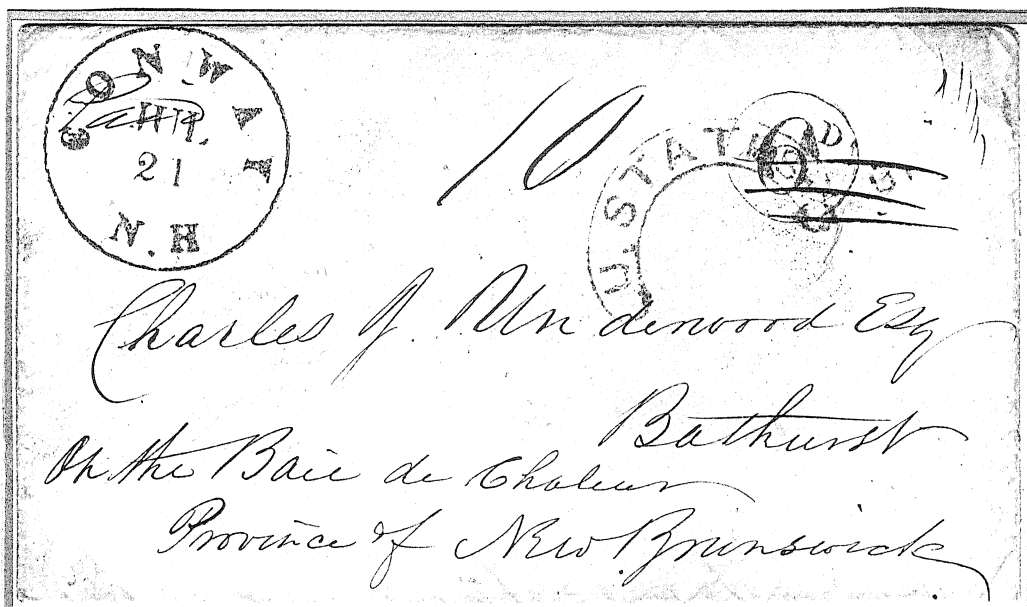 CONWAY
21
N.H
10
U.STATES
6
Charles J. Underwood Esq
Bathurst
On the Baie de Chaleur
Province of New Brunswick